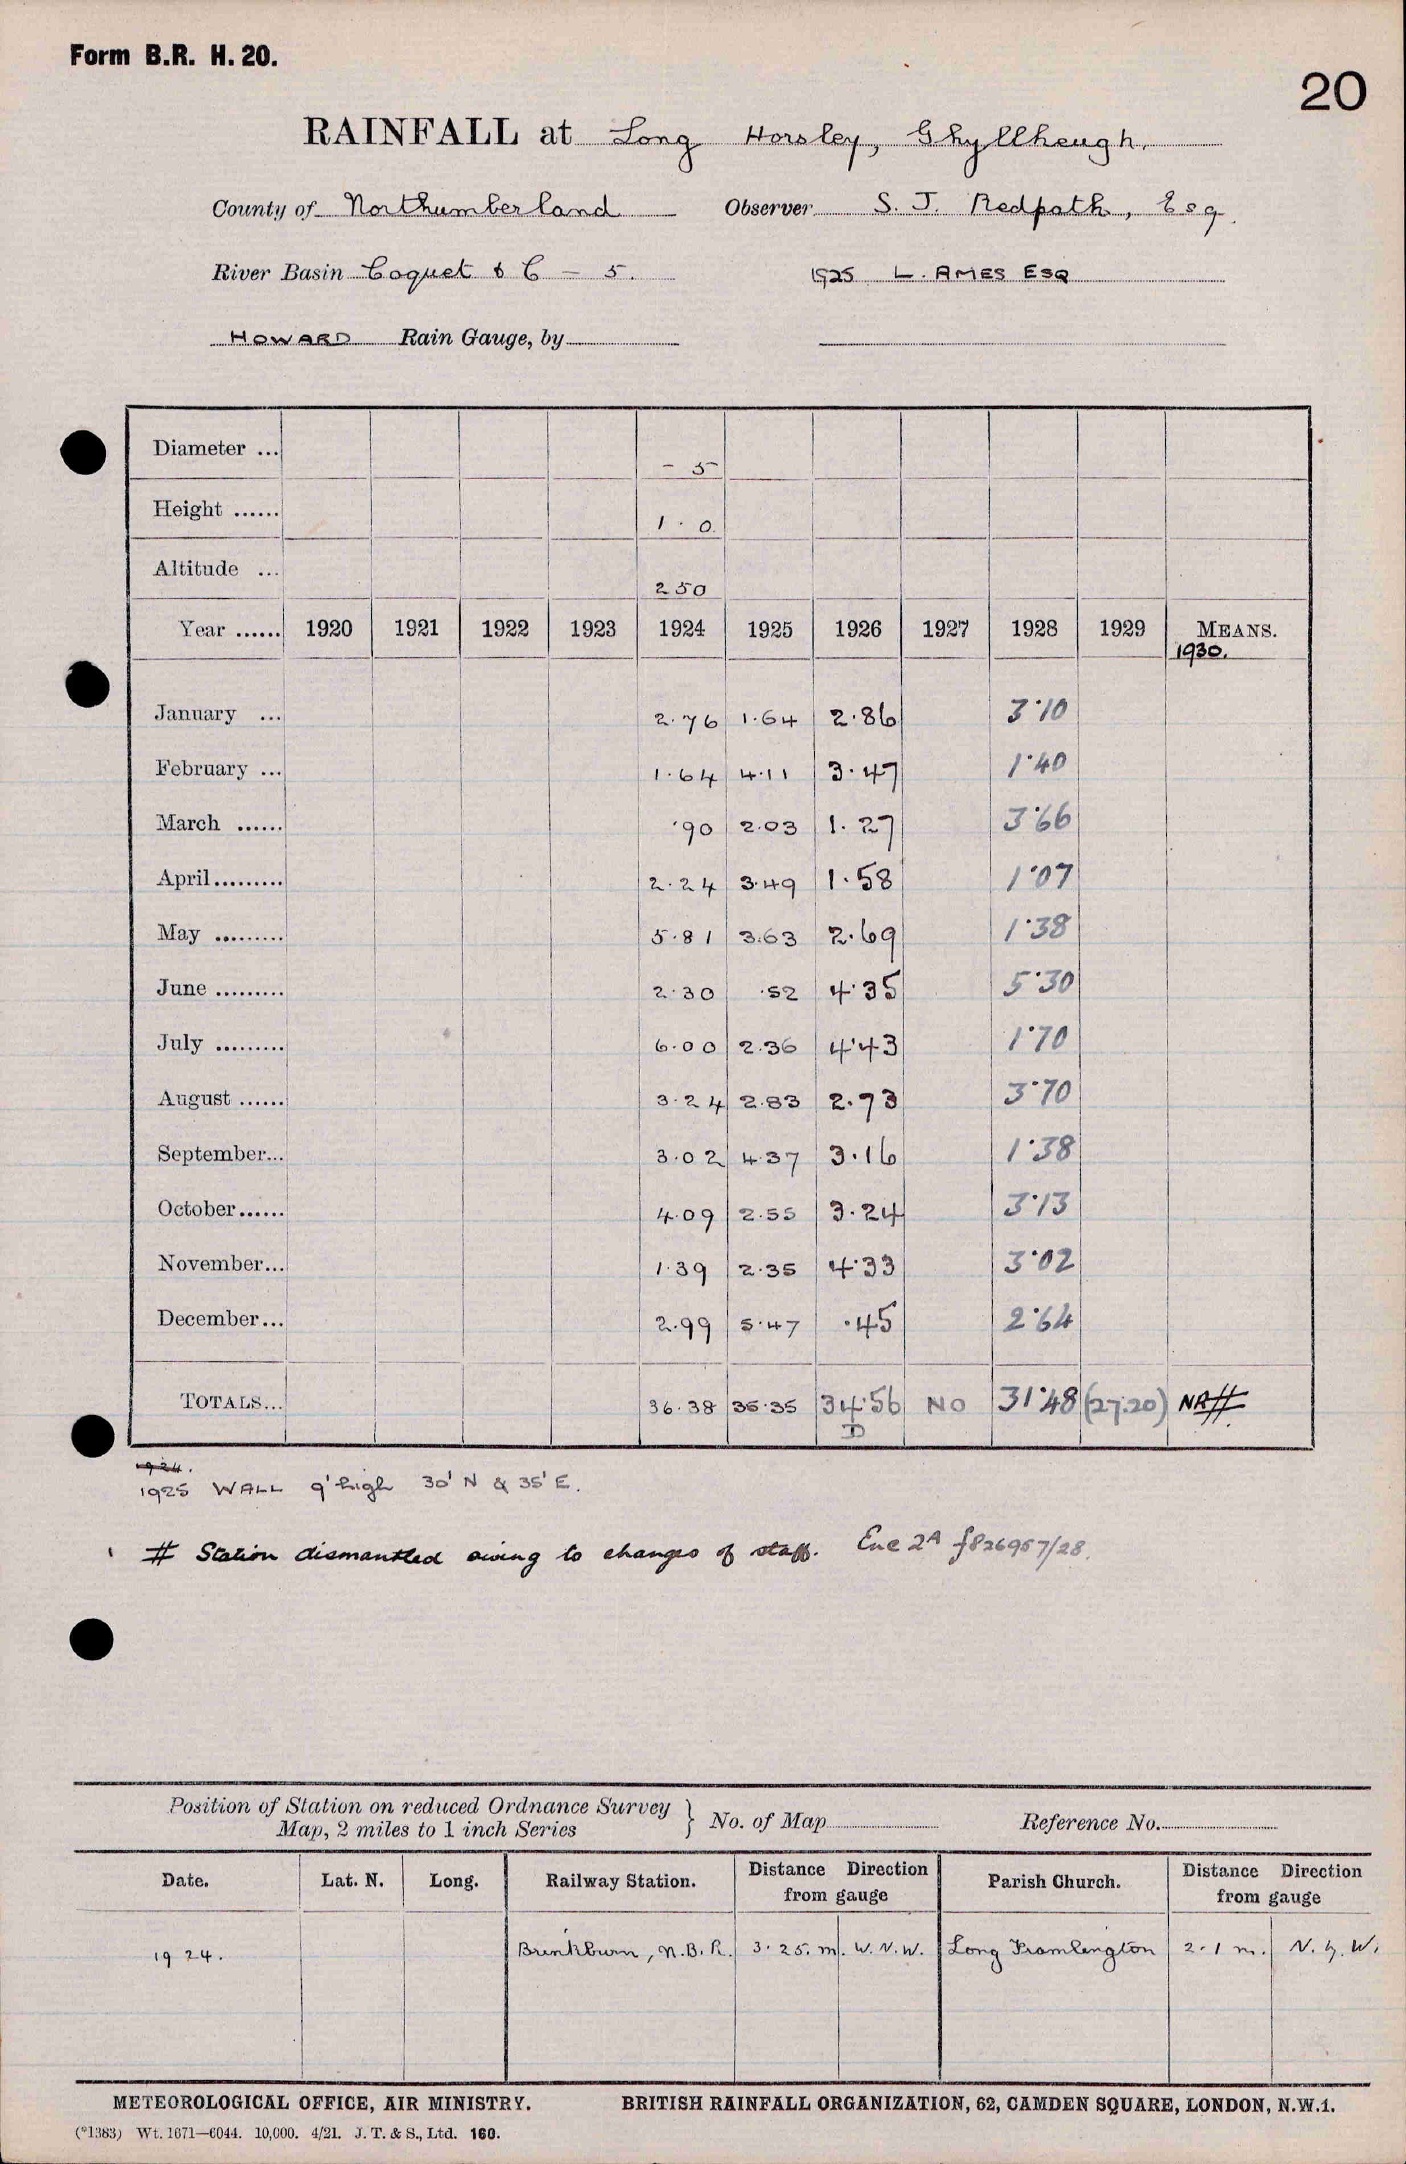 Form B.R. H. 20.
20
RAINFALL at Long Horsley, Ghyllheugh.
County of Northumberland Observer S. J. Redpath, Esq.
River Basin Coquet & C — 5. 1925 L. AMES ESQ
HOWARD Rain Gauge, by
Diameter ... - 5
Height ...... 1 . 0
Altitude ... 250
Year ...... 1920 1921 1922 1923 1924 1925 1926 1927 1928 1929 MEANS.
1930.
January ... 2.76 1.64 2.86 3.10
February ... 1.64 4.11 3.47 1.40
March ...... .90 2.03 1.27 3.66
April......... 2.24 3.49 1.58 1.07
May ......... 5.81 3.63 2.69 1.38
June ......... 2.30 .52 4.35 5.30
July ......... 6.00 2.36 4.43 1.70
August ...... 3.24 2.83 2.73 3.70
September... 3.02 4.37 3.16 1.38
October...... 4.09 2.55 3.24 3.13
November... 1.39 2.35 4.33 3.02
December... 2.99 5.47 .45 2.64
TOTALS... 36.38 35.35 34.56 NO 31.48 (27.20) NR#
D
1924.
1925 WALL 9' high 30' N & 35' E.
# Station dismantled owing to changes of staff. Enc 2A f826957/28.
Position of Station on reduced Ordnance Survey
Map, 2 miles to 1 inch Series } No. of Map Reference No.
Date. Lat. N. Long. Railway Station. Distance Direction from gauge Parish Church. Distance Direction from gauge
1924. Brinkburn, N.B.R. 3.25.m. W.N.W. Long Framlington 2.1 m. N. y. W.
METEOROLOGICAL OFFICE, AIR MINISTRY. BRITISH RAINFALL ORGANIZATION, 62, CAMDEN SQUARE, LONDON, N.W.1.
(*1383) Wt. 1671—6044. 10,000. 4/21. J. T. & S., Ltd. 160.